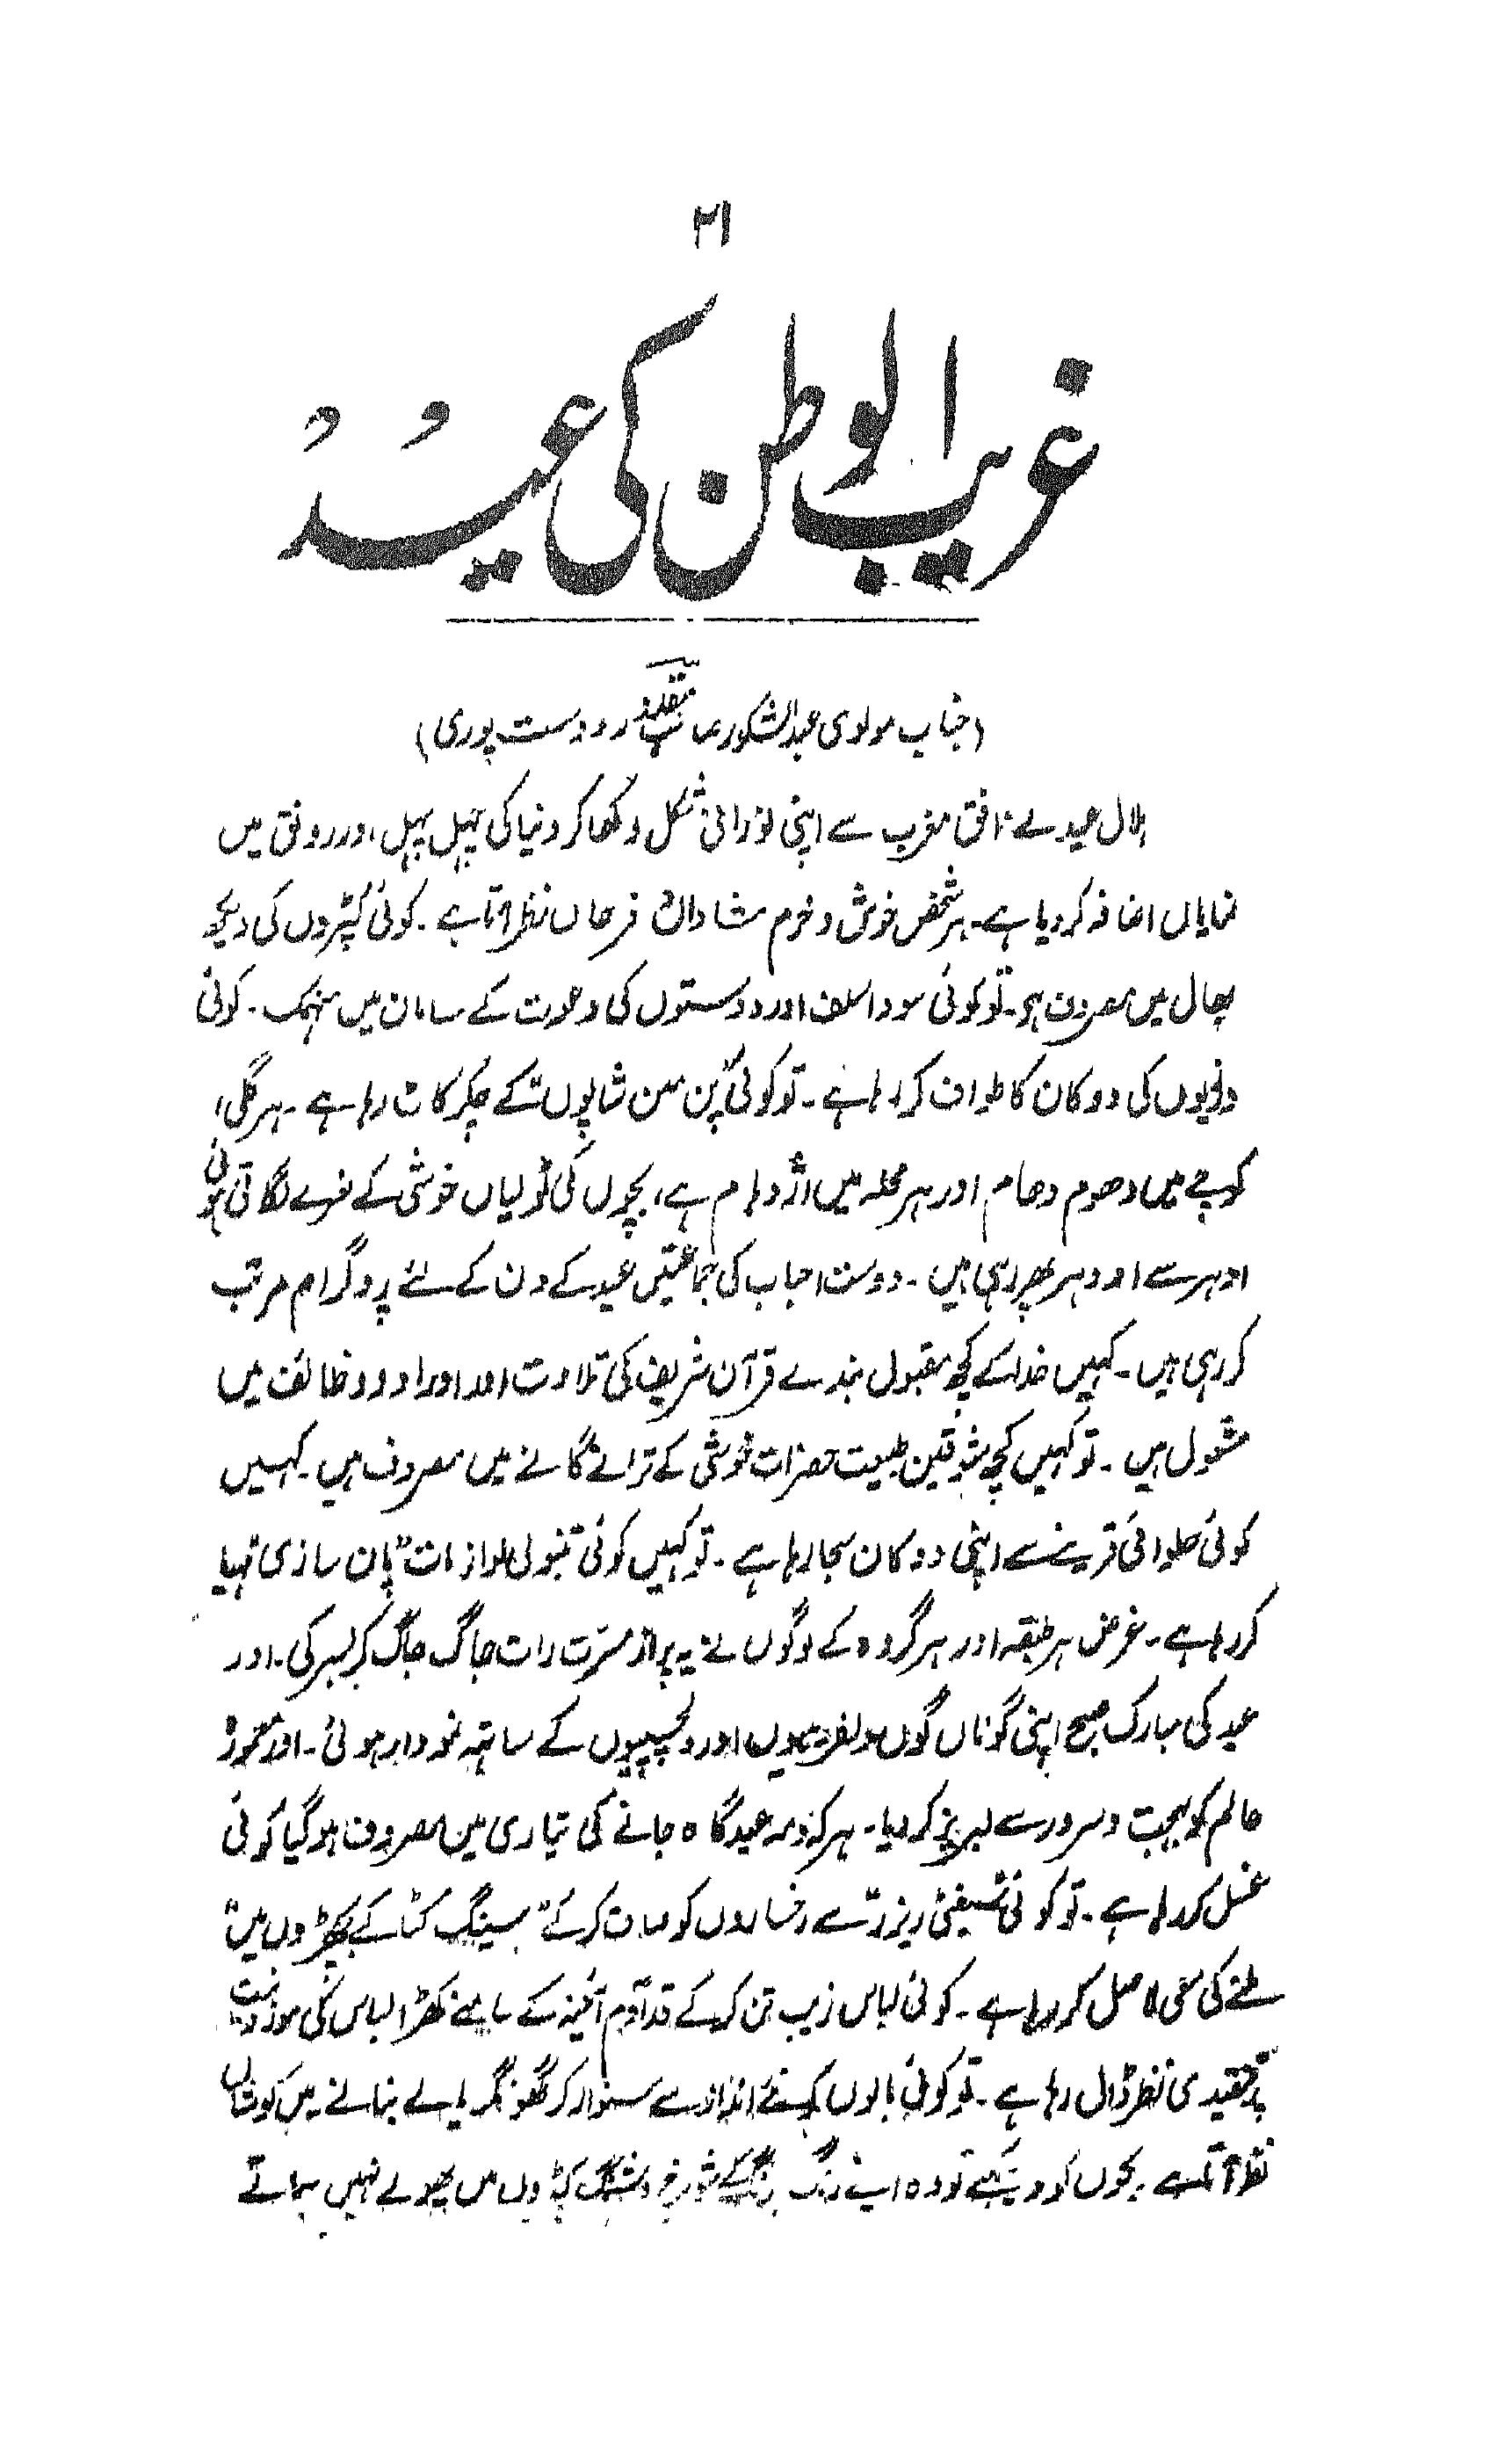 ۲۱
غریب الوطن کی عید
(جناب مولوی عبدالشکور صاحب دوست پوری)
ہلال عید نے افق مغرب سے اپنی نورانی شکل دکھا کر دنیا کی چہل پہل، اور رونق میں
نمایاں اضافہ کر دیا ہے۔ ہر شخص خوش و خرم شاداں فرحاں نظر آتا ہے۔ کوئی کپڑوں کی دیکھ
بھال میں مصروف ہو۔ تو کوئی سودا سلف اور دوستوں کی دعوت کے سامان میں منہمک۔ کوئی
درزیوں کی دوکان کا طواف کر رہا ہے۔ تو کوئی کے چکر کاٹ رہا ہے۔ ہر گلی،
کوچے میں دھوم دھام اور ہر محلہ میں اژدہام ہے، بچوں کی ٹولیاں خوشی کے نعرے لگاتی ہوئی
ادہر سے اودہر پھر رہی ہیں۔ دوست احباب کی جماعتیں عید کے دن کے لئے پروگرام مرتب
کر رہی ہیں۔ کہیں خدا کے کچھ مقبول بندے قرآن شریف کی تلاوت اور اوراد و وظائف میں
مشغول ہیں۔ تو کہیں کچھ شوقین طبیعت حضرات خوشی کے ترانے گانے میں مصروف ہیں۔ کہیں
کوئی حلوائی قرینے سے اپنی دوکان سجا رہا ہے۔ تو کہیں کوئی تنبولی لوازمات "پان سازی مہیا
کر رہا ہے۔ غرض ہر طبقہ اور ہر گروہ کے لوگوں نے یہ پراز مسرّت رات جاگ جاگ کر بسر کی۔ اور
عید کی مبارک صبح اپنی گوناں گوں دلفریبیوں اور دلچسپیوں کے ساتھ نمودار ہوئی۔ اور
عالم کو بہجت و سرور سے لبریز کر دیا۔ ہر کہ ومہ عیدگاہ جانے کی تیاری میں مصروف ہو گیا کوئی
غسل کر رہا ہے۔ تو کوئی "سیفٹی ریزر" سے رخساروں کو صاف کر کے "سینگ کٹا کے بچھڑوں میں"
ملنے کی سعی لاحاصل کر رہا ہے۔ کوئی لباس زیب تن کر کے قد آدم آئینہ کے سامنے کھڑا لباس کی موزونیت
پر تنقیدی نظر ڈال رہا ہے۔ تو کوئی بالوں کو نئے انداز سے سنوار کر گھونگریالے بنانے میں کوشاں
نظر آتا ہے بچوں کو دیکھئے تو وہ اپنے رنگ برنگ کے شوخ کپڑوں میں پھولے نہیں سماتے